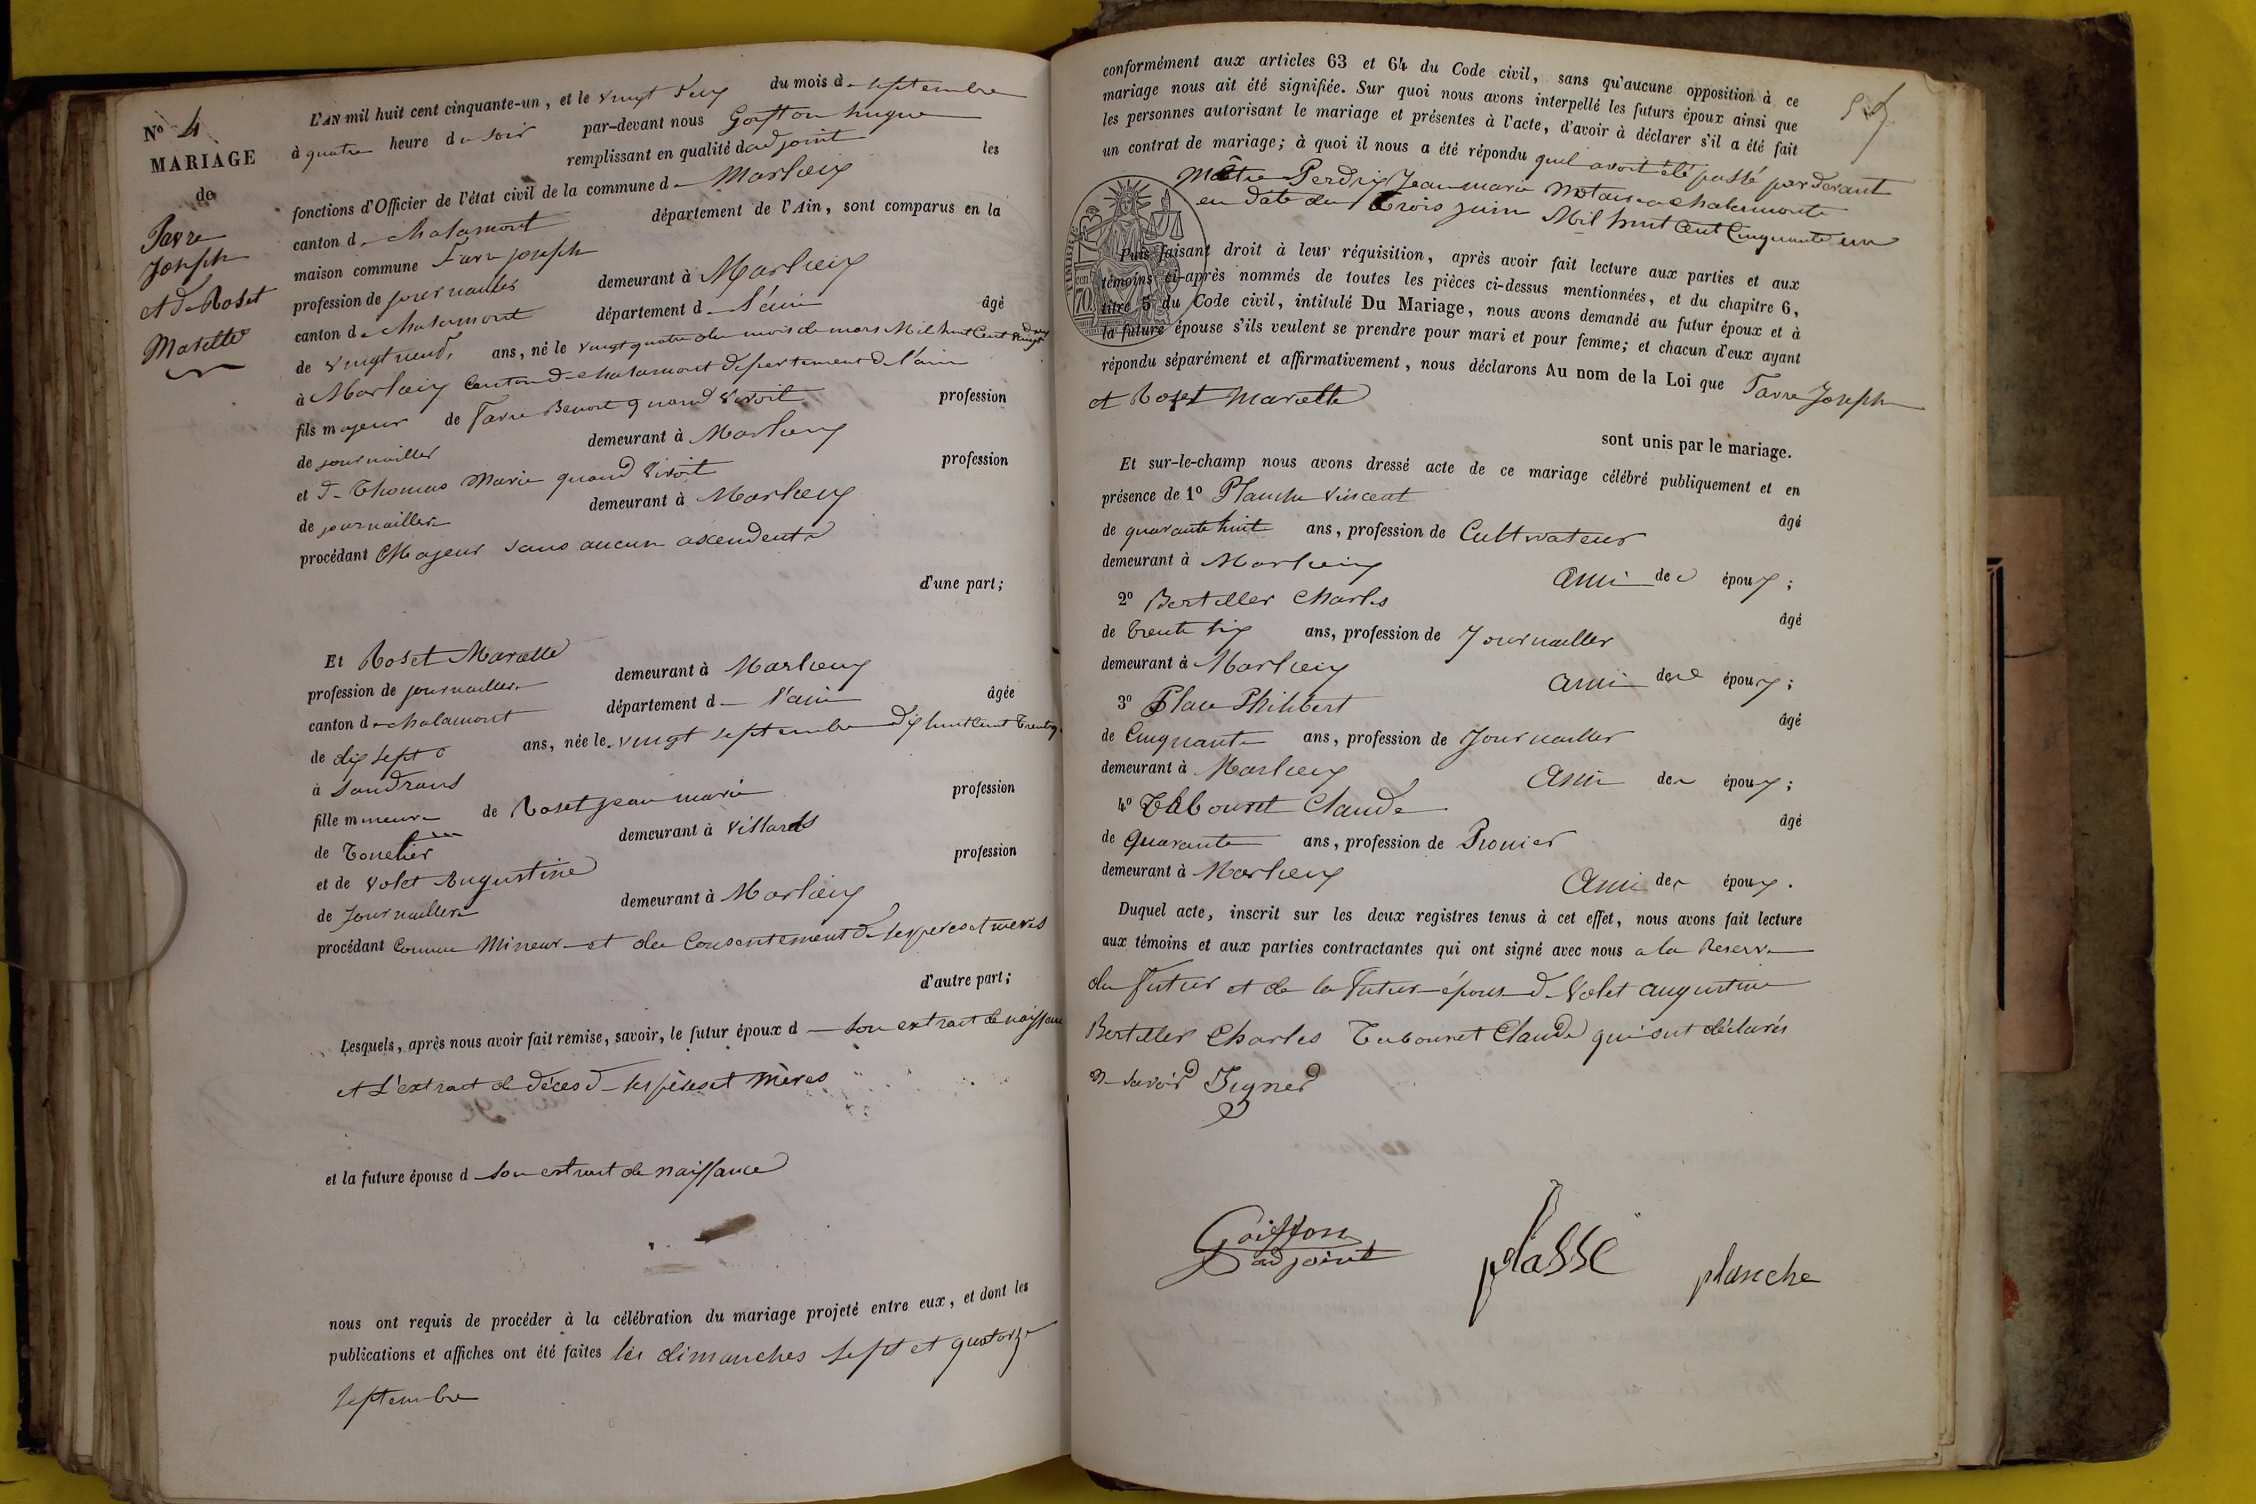 Nº 4
MARIAGE
de
Favre
Joseph
et de Roset
Mariette
L'AN mil huit cent cinquante-un, et le vingt deux du mois de septembre
à quatre heure du soir par-devant nous Goiffon hugue
remplissant en qualité d'adjoint les
fonctions d'Officier de l'état civil de la commune de Marlieux
canton de chalamont département de l'Ain, sont comparus en la
maison commune Favre joseph
profession de journailler demeurant à Marlieux
canton de chalamont département de l'ain âgé
de vingt neuf ans, né le vingt quatre du mois de mars Mil huit Cent vingt deux
à Marlieux Canton de chalamont departement de l'ain
fils majeur de Favre Benoit quand vivoit profession
de journailler demeurant à Marlieux
et de Thomas Marie quand vivoit profession
de journaillere demeurant à Marlieux
procédant Majeur sans aucun ascendent
d'une part;
Et Roset Mariette
profession de journaillere demeurant à Marlieux
canton de chalamont département de l'ain âgée
de dix sept ans, née le vingt septembre dix huit Cent Trente
à Sandrans
fille mineure de Roset jean marie profession
de Tonelier demeurant à Villards
et de Volet Augustine profession
de Journaillere demeurant à Marlieux
procédant Comme Mineur et du Consentement de ses peres et meres
d'autre part;
Lesquels, après nous avoir fait remise, savoir, le futur époux de son extrait de naissance
et L'extrait de déces de ses pères et mères
et la future épouse de son extrait de naissance
nous ont requis de procéder à la célébration du mariage projeté entre eux, et dont les
publications et affiches ont été faites les dimanches sept et quatorze
septembre
conformément aux articles 63 et 64 du Code civil, sans qu'aucune opposition à ce
mariage nous ait été signifiée. Sur quoi nous avons interpellé les futurs époux ainsi que
les personnes autorisant le mariage et présentes à l'acte, d'avoir à déclarer s'il a été fait
un contrat de mariage; à quoi il nous a été répondu quil avoit été passé pardevant
Maître Perdrix Jean marie Notaire a chalamont
en date du Trois juin Mil huit Cent Cinquante un
TIMBRE
70
Puis faisant droit à leur réquisition, après avoir fait lecture aux parties et aux
témoins ci-après nommés de toutes les pièces ci-dessus mentionnées, et du chapitre 6,
titre 5 du Code civil, intitulé Du Mariage, nous avons demandé au futur époux et à
la future épouse s'ils veulent se prendre pour mari et pour femme; et chacun d'eux ayant
répondu séparément et affirmativement, nous déclarons Au nom de la Loi que Favre Joseph
et Roset Mariette
sont unis par le mariage.
Et sur-le-champ nous avons dressé acte de ce mariage célébré publiquement et en
présence de 1º Planche Vincent âgé
de quarante huit ans, profession de Cultivateur
demeurant à Marlieux Ami des époux;
2º Bertiller Charles âgé
de trente six ans, profession de Journailler
demeurant à Marlieux ami des époux;
3º Place Philibert âgé
de Cinquante ans, profession de Journailler
demeurant à Marlieux Ami des époux;
4º Tabouret Claude âgé
de Quarante ans, profession de
demeurant à Marlieux Ami des époux.
Duquel acte, inscrit sur les deux registres tenus à cet effet, nous avons fait lecture
aux témoins et aux parties contractantes qui ont signé avec nous a la Reserve
du futur et de la Future épouse de Volet augustine
Bertiller Charles Tabouret Claude qui ont déclarés
ne savoir Signer
Goiffon
adjoint
plasse
planche